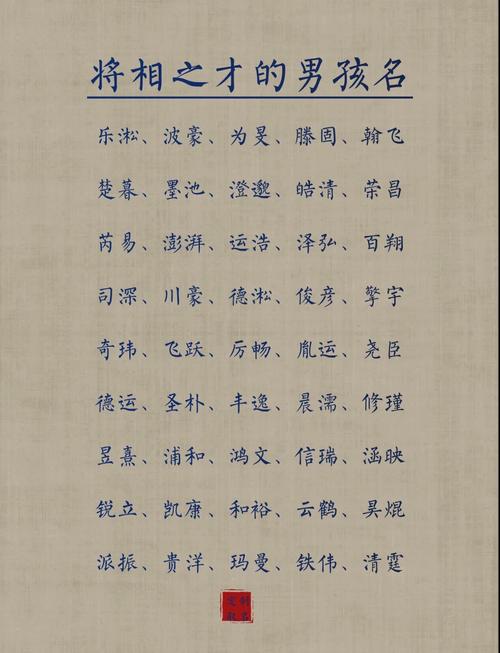 将相之才的男孩名
乐淞、波豪、为旻、滕固、翰飞
楚暮、墨池、澄邈、皓清、荣昌
芮易、澎湃、运浩、泽弘、百翔
司深、川豪、德淞、俊彦、擎宇
奇玮、飞跃、厉畅、胤运、尧臣
德运、圣朴、丰逸、晨濡、修瑾
昱熹、浦和、鸿文、信瑞、涵映
锐立、凯康、和裕、云鹤、昊焜
派振、贵洋、玛曼、铁伟、清霆